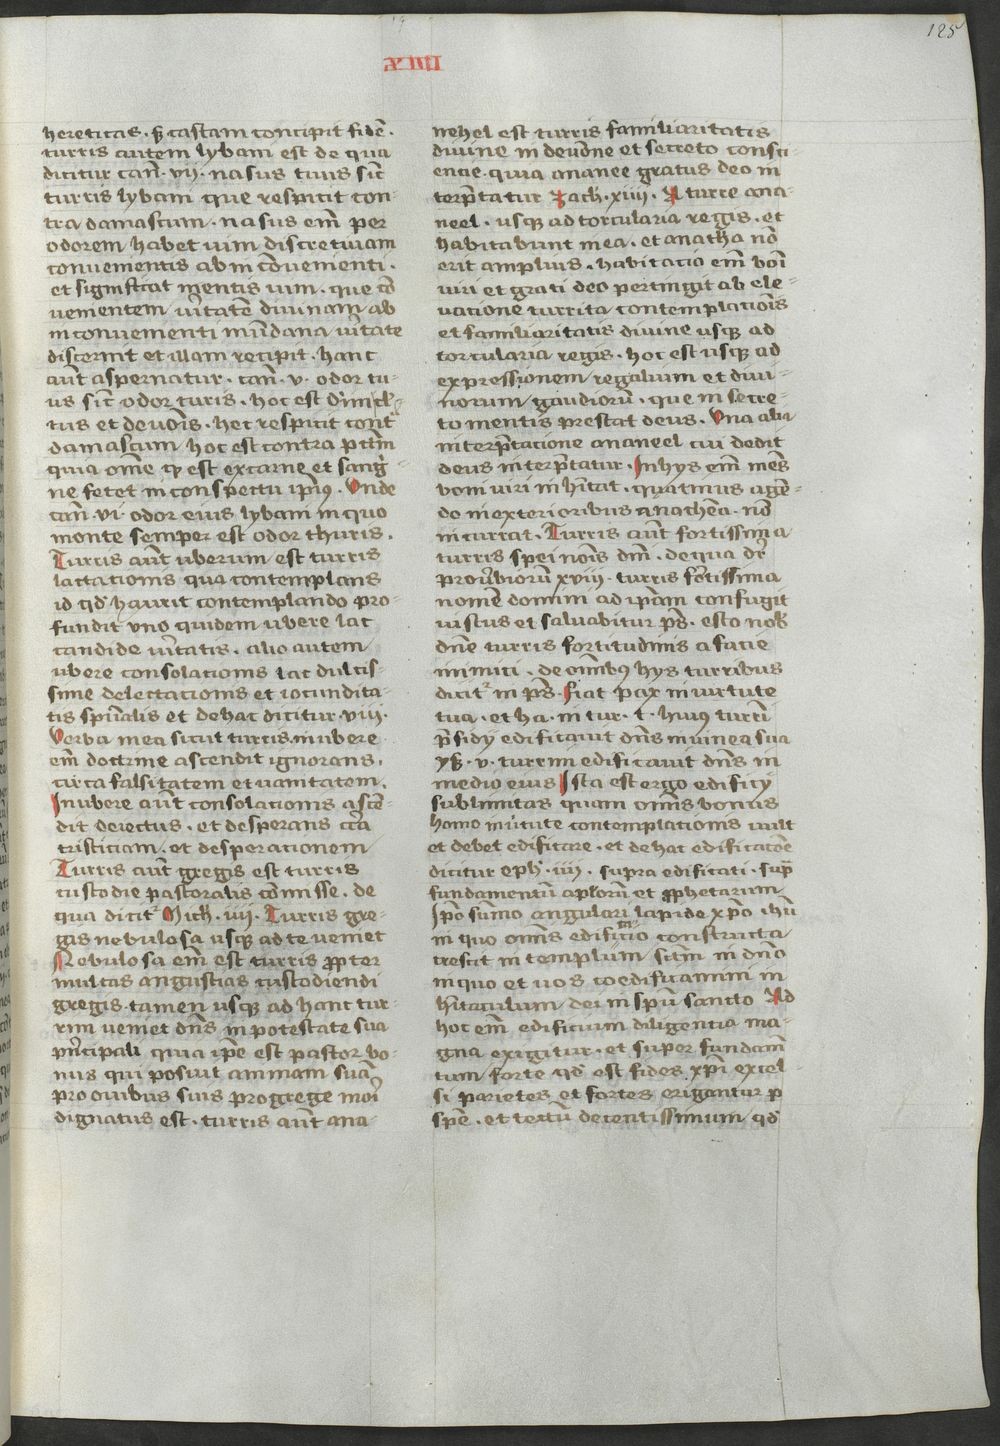 125
XIIII
hereticas · sꝫ castam concipit fidē ·
turris autem lybani est de qua
dicitur can̄ · vij · nasus tuus sic̄
turris lybani que respicit con-
tra damascum · nasus em̄ per
odorem habet uim discretiuam
conuenientis ab incōuenienti ·
et significat mentis uim · que cō
uenientem ueritatē diuinam ab
inconuenienti mūdana uitate
discernit et illam recipit · hanc
aut̄ aspernatur · can̄ · v · odor tu-
us sic̄ odor turis · hoc est
tus et deuōis · hec respicit cont̄
damascum hoc est contra
quia om̄e qꝫ est excarne et sanḡ-
ne fetet in conspectu ip̄ius · Unde
can̄ · vi · odor eius lybani in quo
monte semper est odor thuris ·
Turris aut̄ uberum est turris
lactationis qua contemplans
id qd̄ haurit contemplando pro-
fundit vno quidem ubere lac
candide ueritatis · alio autem
ubere consolationis lac dulcis-
sime delectationis et iocundita-
tis spūalis et de hac dicitur · viij ·
Verba mea sicut turris in ubere
em̄ doctrine ascendit ignorans ·
circa falsitatem et uanitatem ·
In ubere aut̄ consolationis ascē-
dit deiectus · et desperans cc̄a
tristiciam · et desperationem
Turris aut̄ gregis est turris
custodie pastoralis cōmisse · de
qua dicit᷑ Mich̄ · iiij · Turris gre-
gis nebulosa usqꝫ ad te ueniet
Nebulosa em̄ est turris ꝓpter
multas angustias custodiendi
gregis · tamen usqꝫ ad hanc tur-
rim ueniet dn̄s in potestate sua
pn̄cipali quia ip̄e est pastor bo-
nus qui posuit animam suā
pro ouibus suis pro grege mori
dignatus est · turris aut̄ ana-
nehel est turris familiaritatis
diuine in deuōne et secreto consci-
encie · quia ananee gratus deo in
terp̄tatur Zach · xiiij · A turre ana-
neel · usqꝫ ad torcularia regis · et
habitabunt in ea · et anath̄a nō
erit amplius · habitatio em̄ boni
uiri et grati deo pertingit ab ele-
uatione turrita contemplatiōis
et familiaritatis diuine usqꝫ ad
torcularia regis · hoc est usqꝫ ad
expressionem regalium et diui-
norum gaudiorū · que in secre-
to mentis prestat deus · Vna alia
interp̄tacione ananeel cui dedit
deus interp̄tatur · In hys em̄ mēs
boni uiri inh̄itat · quatinus agē-
do in exterioribus anathēa · nō
incurrat · Turris aut̄ fortissima
turris spei nōis dn̄i · de qua dr̄
prouerbiorū xviij · turris fortissima
nomē domini ad ip̄am confugit
iustus et saluabitur ps̄ · esto nob̄
dn̄e turris fortitudinis a facie
inimici · de om̄ibus hys turribus
dicit᷑ in ps̄ · Fiat pax in uirtute
tua · et ha · in tur · t · huius turrī
p̄sidij edificauit dn̄s in uinea sua
ys̄ · v · turrim edificauit dn̄s in
medio eius Ista est ergo edificij
sublimitas quam om̄is bonus
homo in uirtute contemplationis uult
et debet edificare · et de hac edificatōe
dicitur eph̄ · iiij · supra edificati · sup̄
fundamentū aplorū et ꝓphetarum
Ip̄o sūmo angulari lapide xp̄o ihū
in quo om̄is edificatio constructa
crescit in templum sanctū in dn̄o
in quo et uos coedificamini in
h̄itaculum dei in spū sancto Ad
hoc em̄ edificium diligentia ma-
gna exigitur · et super fundam̄
tum forte qd̄ est fides xp̄i excel-
si parietes et fortes erigantur p
spē · et tectū decentissimum qd̄